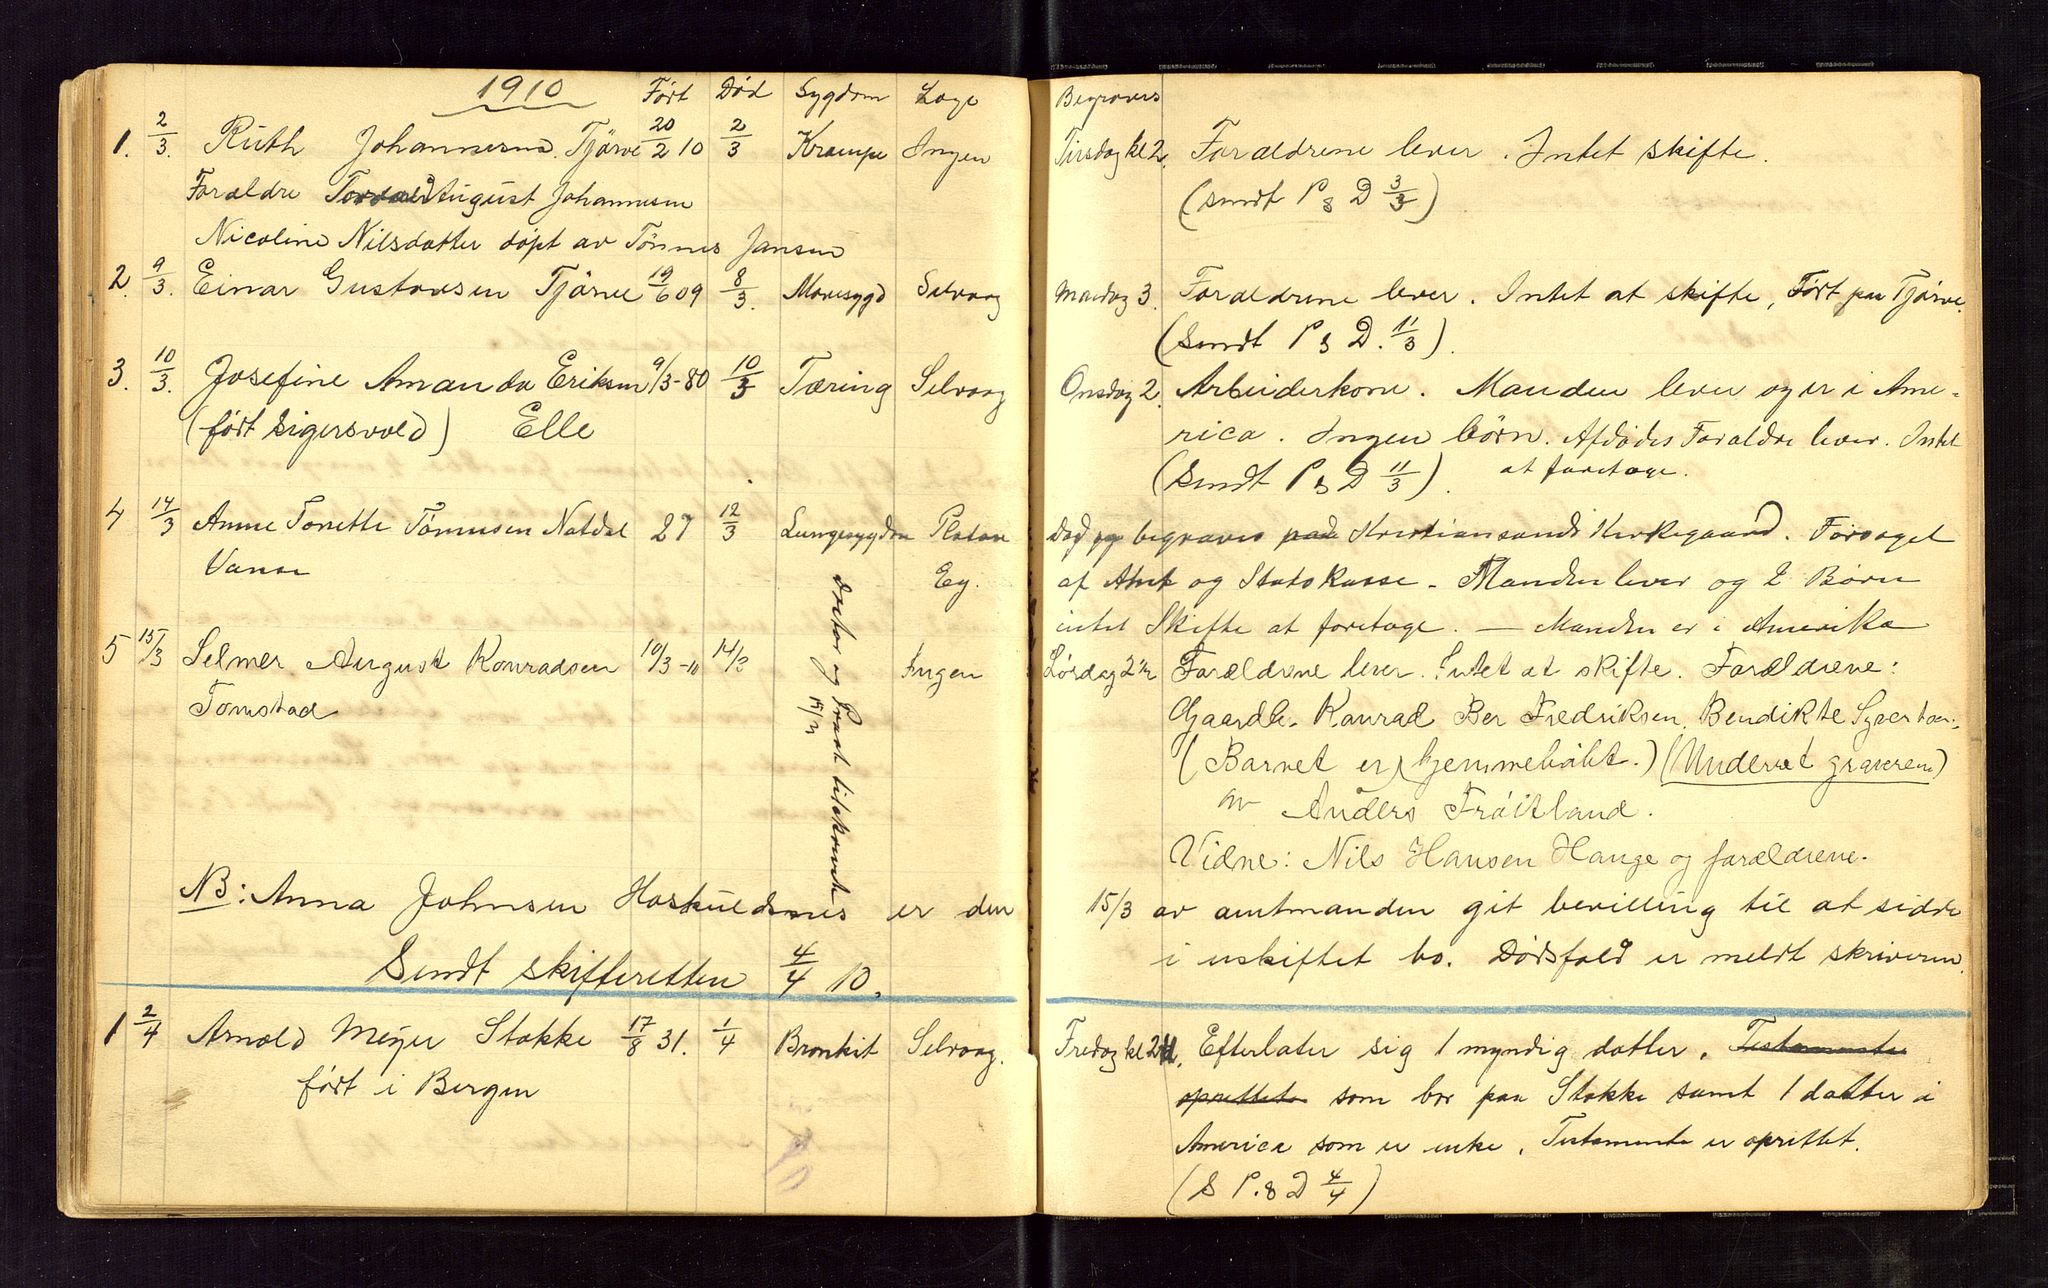 1910 Født Død Sygdom Læge
1. 2/3. Ruth Johannesen. Tjørve 20/2 10 2/3 Krampe Ingen
Forældre August Johannesen
Nicoline Nilsdatter døpt av Tönnes Jansen
2. 9/3. Einar Gustavsen Tjørve 19/6 09 8/3. Mavesygd Selvaag
3. 10/3. Josefine Amanda Eriksen 9/3-80 10/3 Tæring Selvaag
(født Sigersvold) Elle
4 14/3 Anne Tonette Tönnesen Natdal 27 12/3 Lungesygdom Platou
Vanse Eg.
Doctor og Præst tilskrevet 15/3
5 15/3 Selmer August Konradsen 10/3-10 14/3 Ingen
Tomstad
NB: Anna Johnsen Haskuldsnes er den
Sendt skifteretten 4/4 10.
1 2/4 Arnold Meyer Stokke 17/8 31. 1/4 Bronkit Selvaag.
født i Bergen
Begraves
Tirsdag kl 2. Forældrene lever. Intet skifte.
(sendt P & D 3/3)
Mandag 3. Forældrene lever. Intet at skifte, Født paa Tjørve.
(Sendt P & D. 11/3).
Onsdag 2. Arbeiderkone. Manden lever og er i Ame-
rica. Ingen börn. Afdødes Forældre lever. Intet
(Sendt P & D 11/3). at foretage.
begraves paa Kristiansands Kirkegaard. Forsøget
af Amt og Statskasse - Manden lever og 2 Børn
intet Skifte at foretage. — Manden er i Amerika
Lørdag 2 Forældrene lever. Intet at skifte. Forældrene:
Gaardb. Konrad Ber Fredriksen, Bendikte
(Barnet er hjemmedøbt.) (Underret graveren)
av Anders Frøitland.
Vidne: Nils Hansen Hauge og forældrene.
15/3 av amtmanden git bevilling til at sidde
i uskiftet bo. Dødsfald er meldt skriveren.
Fredag kl 2. Efterlater sig 1 myndig datter. Testamente
oprettet som bor paa Stokke samt 1 datter i
America som er enke. Testamente er oprettet.
(S P. & D 4/4)